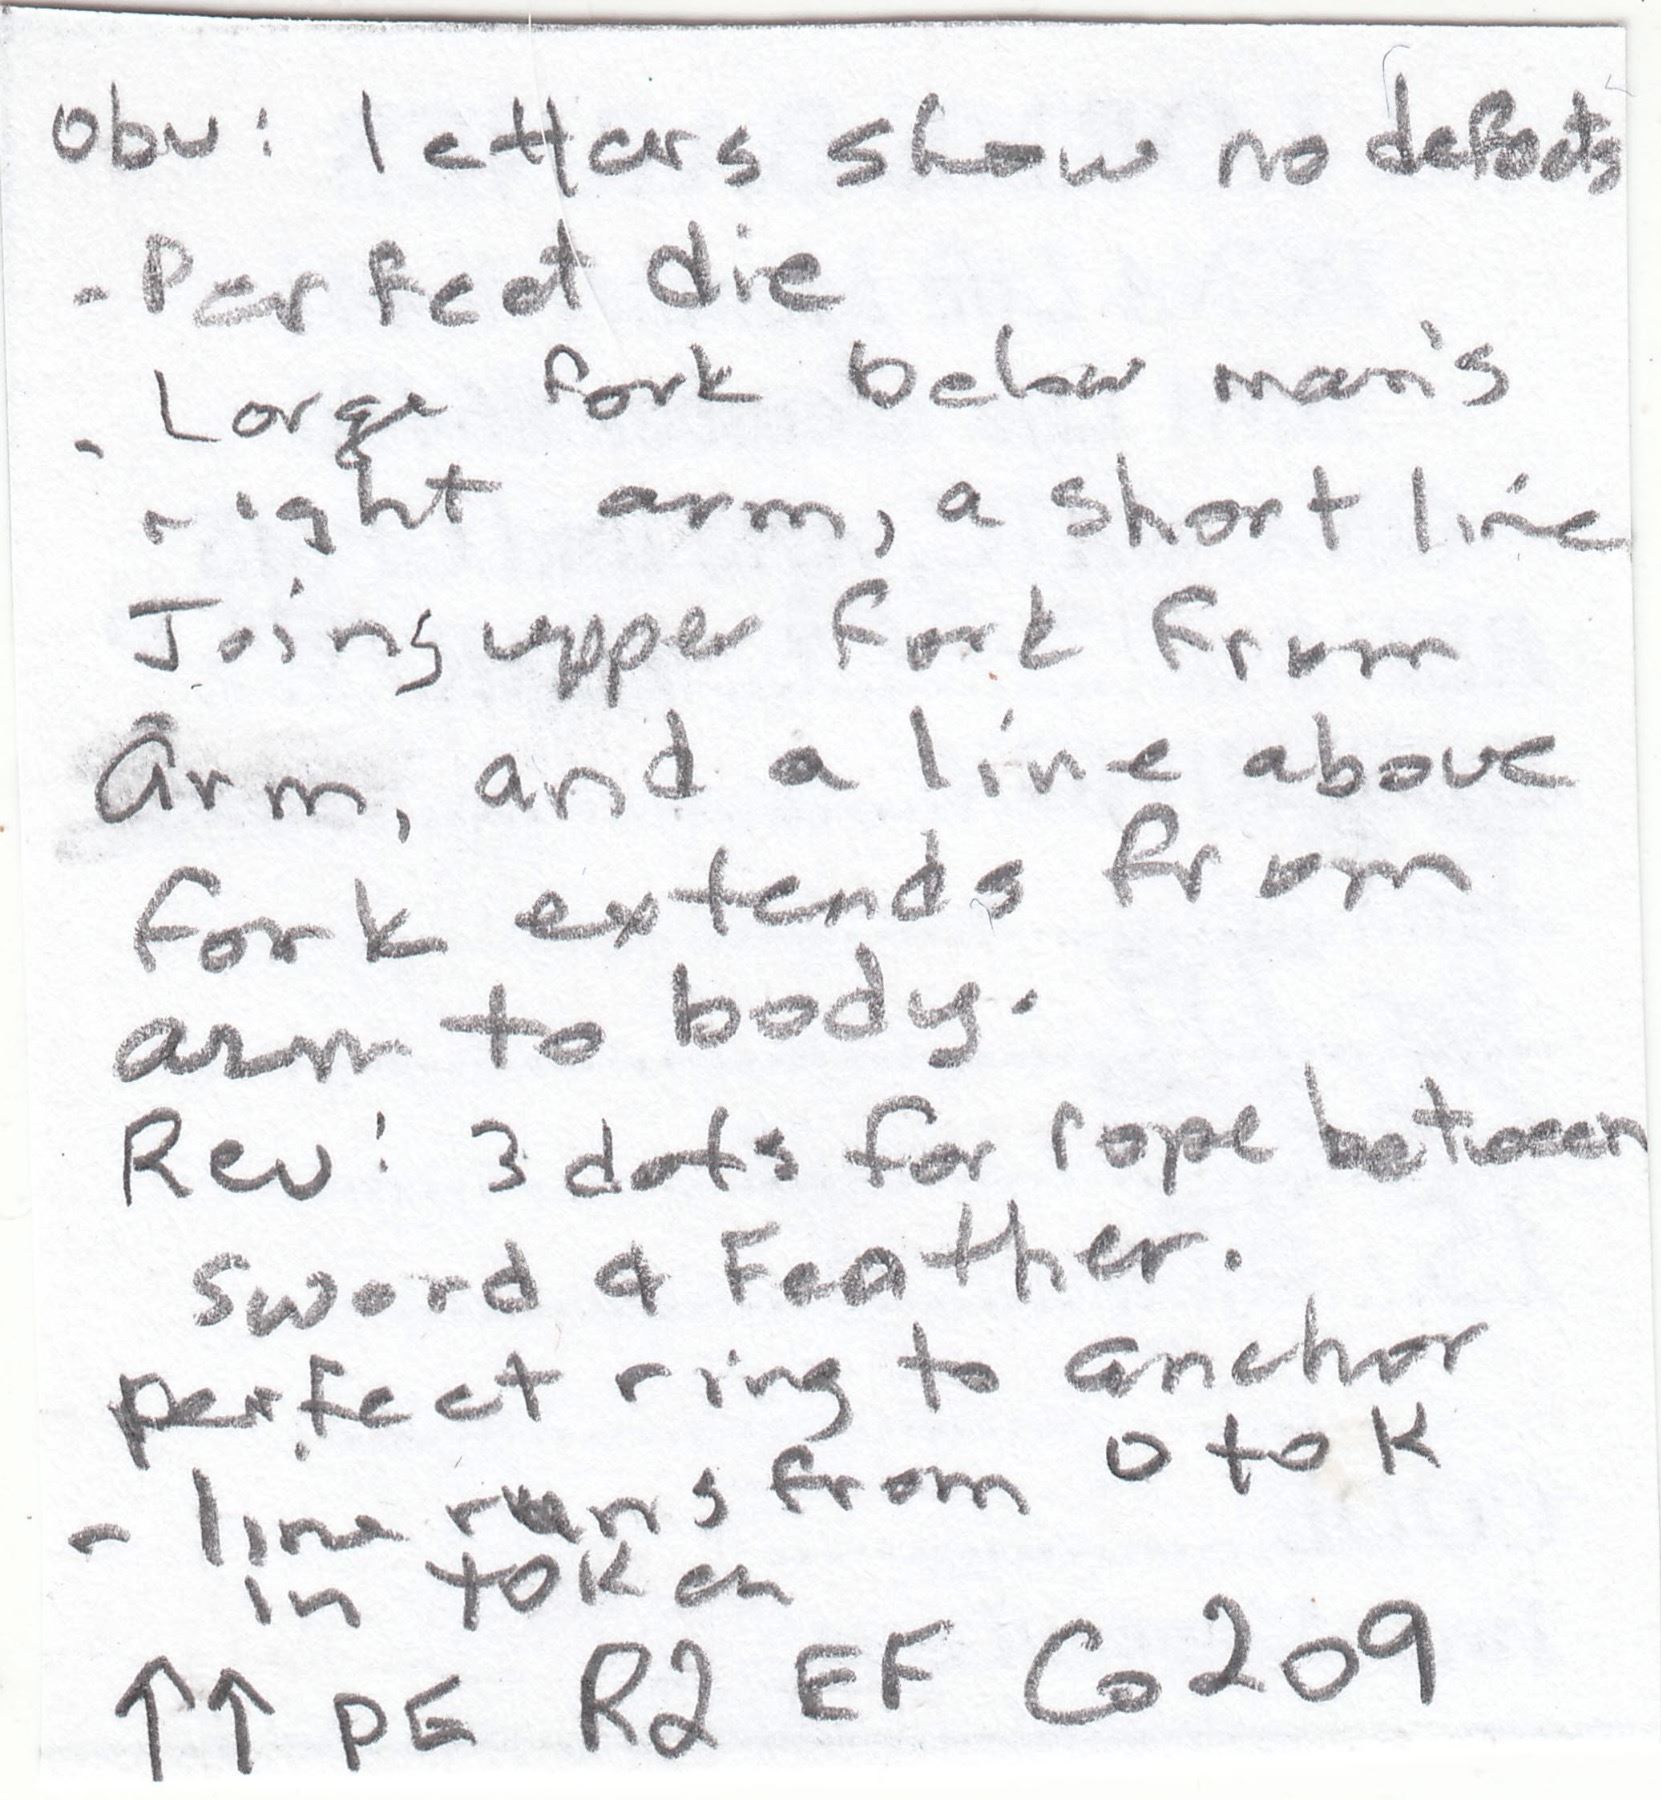 Obv: letters show no defects
- Perfect die
- Large fork below man's
right arm, a short line
Joins upper fork from
Arm, and a line above
fork extends from
arm to body.
Rev: 3 dots for rope between
sword & Feather.
perfect ring to anchor
- line runs from O to K
in token
↑↑ PE R2 EF Co209